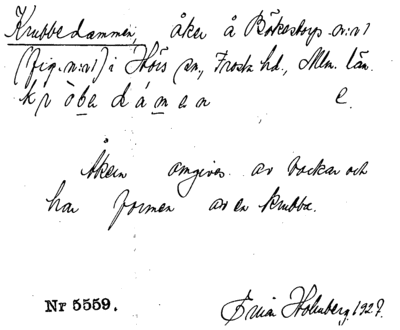 Krubbedammen, åker å Bökestorps n:r 1
(fig. n:r 1) i Hörs sn, Frosta hd., Mlm. län.
kròbe dámen e.
Åkern omgives av backar och
har formen av en krubba.
Nr 5559.
Holmberg. 1927.